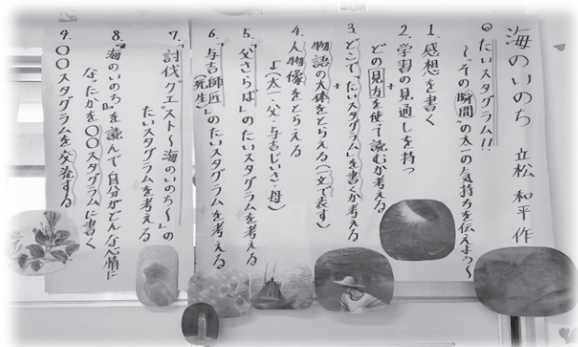 海のいのち　立松 和平 作
◎たいスタグラム!!
〜その瞬間の太一の気持ちを伝えよう〜
1. 感想を書く
2. 学習の見通しを持つ
どの見方を使て読むか考える
+
3. どこで「たいスタグラム」を書くか考える
+
物語の大体をとらえる(一文で表す)
4. 人物像をとらえる
(太一・父・与吉じいさ・母)
5. 「父さらば」のたいスタグラムを考える
6. 「与吉師匠」のたいスタグラムを考える
(死生)
7. 「討伐クエスト〜海のいのち〜」の
たいスタグラムを考える
8. 『海のいのち』を読んで自分がどんな心情に
なったかを〇〇スタグラムに書く
9. 〇〇スタグラムを交流する